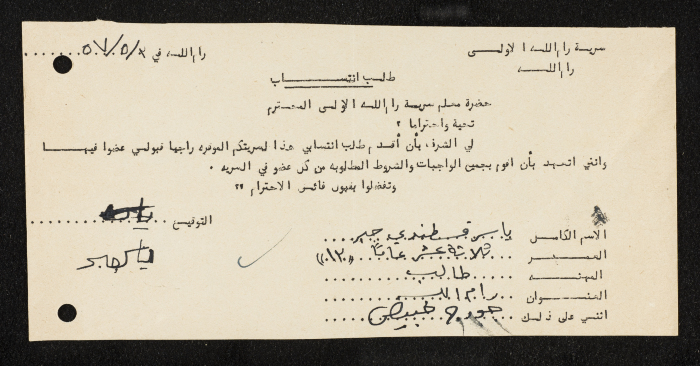 سرية رام الله الاولى
رام الله
رام الله في ٥٧/٥/٢
طلب انتساب
حضرة معلم سرية رام الله الاولى المحترم
تحية واحتراما ؟
لي الشرف بأن أقدم طلب انتسابي هذا لسريتكم الموقره راجيا قبولي عضوا فيها
وانني اتعهد بأن اقوم بجميع الواجبات والشروط المطلوبه من كل عضو في السريه .
وتفضلوا بقبول فائق الاحترام ؟؟
التوقيع
الاسم الكامل ياسر قسطندي جبر
العمر ثلاثة عشر عاماً "١٣"
المهنه طالب
العنوان رام الله
اثني على ذلك جورج
ياسر جبر